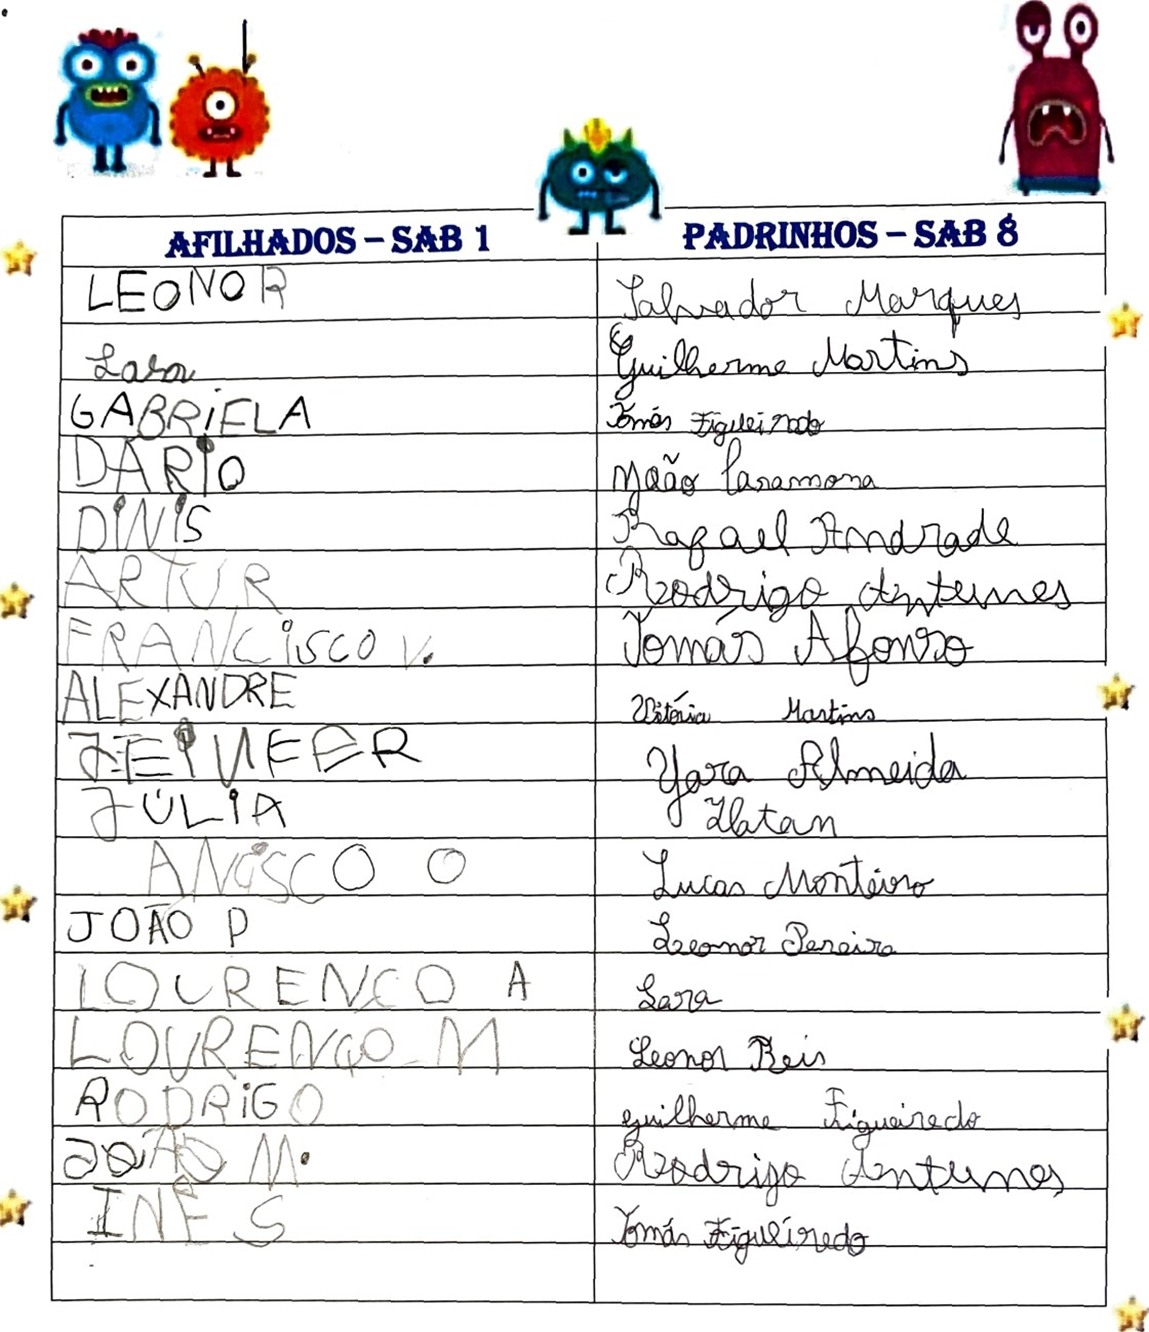 AFILHADOS – SAB 1 PADRINHOS – SAB 8
LEONOR Salvador Marques
Lara Guilherme Martins
GABRIELA Tomás Figueiredo
DARIO João Caramona
DINIS Rafael Andrade
ARTUR Rodrigo Antunes
FRANCISCO V. Tomás Afonso
ALEXANDRE Vitória Martins
Yara Almeida
JÚLIA Zlatan
O Lucas Monteiro
JOÃO P Leonor Pereira
LOURENCO A Lara
LOURENÇO M Leonor Reis
RODRIGO guilherme Figueiredo
JOÃO M. Rodrigo Antunes
INÊS Tomás Figueiredo